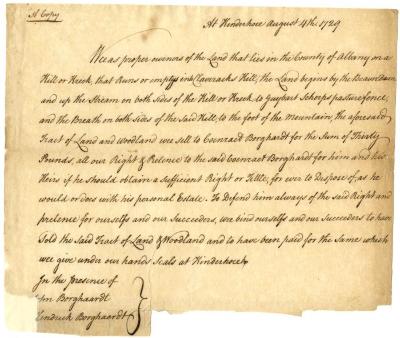 A Copy
At Kinderhoec August 4th. 1729
Wee as proper owners of the Land that lies in the County of Albany on a
Kill or Kreek, that Runs or emptys into Claveracks Kill, the Land begins by the Beaverdam
and up the Stream on both Sides of the Kill or Kreek to Guybart Scherps pasturefence,
and the Breath on both Sides of the Said Kill, to the foot of the Mountain, the aforesaid
Tract of Land and Woodland we sell to Coenraedt Borghardt for the Sum of Thirty
Pounds, all our Right & Pretence to the said Coenraedt Borghardt for him and his
Heirs if he should obtain a Sufficient Right or Tittle, for ever to Dispose of, as he
would or does with his personal Estate. To Defend him always of the said Right and
pretence for ourselfs and our Succeeders, we bind ourselfs and our Succeeders to have
Sold the Said Tract of Land & Woodland and to have been paid for the Same which
wee give under our hands Seals at Kinderhoeck
In the presence of
Borghaardt
Hendrick Borghaardt